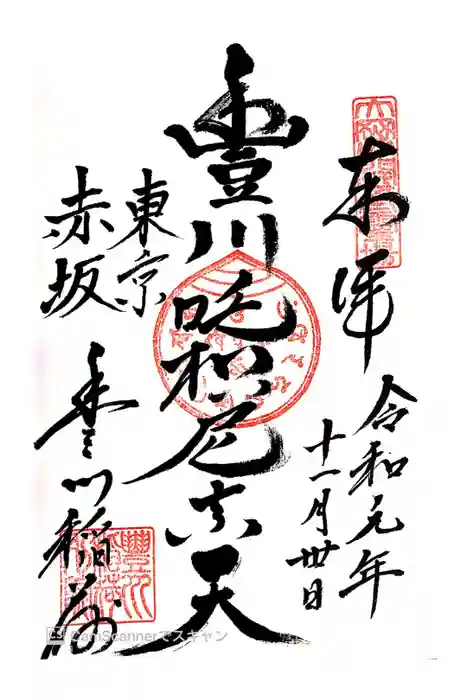 奉拝
令和元年
十一月卅日
豊川吒枳尼真天
東京
赤坂
豊川稲荷
CamScannerでスキャン